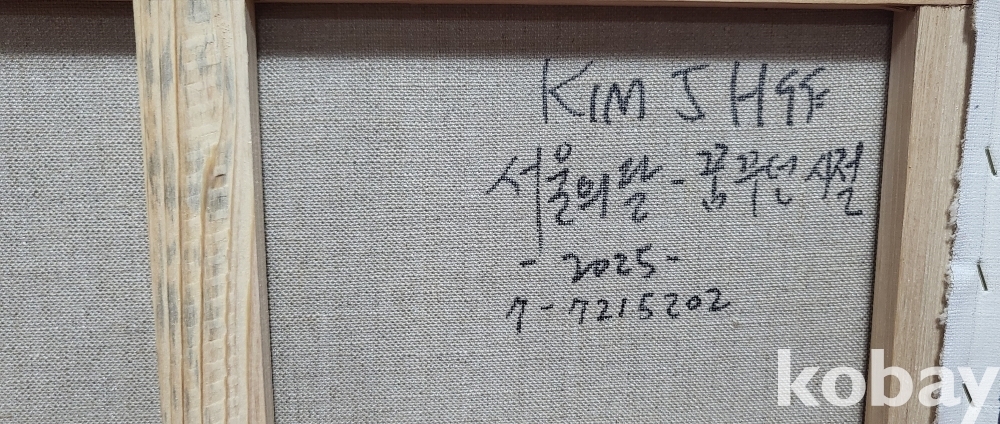 KIM J H
서울의 달 - 꿈꾸던 시절
- 2025 -
7-7215202
kobay